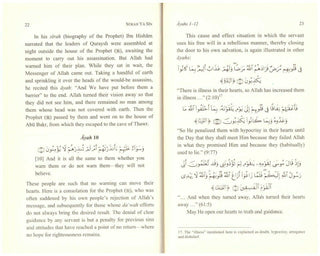 22
SURAH YA SIN
In his sirah (biography of the Prophet) Ibn Hishām
narrated that the leaders of Quraysh were assembled at
night outside the house of the Prophet (ﷺ), awaiting the
moment to carry out his assassination. But Allah had
warned him of their plan. While they sat in wait, the
Messenger of Allah came out. Taking a handful of earth
and sprinkling it over the heads of the would-be assassins,
he recited this āyah: "And We have put before them a
barrier" to the end. Allah turned their vision away so that
they did not see him, and there remained no man among
them whose head was not covered with earth. Then the
Prophet (ﷺ) passed by them and went on to the house of
Abū Bakr, from which they escaped to the cave of Thawr.
Āyah 10
وَسَوَاءٌ عَلَيْهِمْ أَأَنْذَرْتَهُمْ أَمْ لَمْ تُنْذِرْهُمْ لَا يُؤْمِنُونَ
[10] And it is all the same to them whether you
warn them or do not warn them– they will not
believe.
These people are such that no warning can dispel their
errors. Here is a consolation for the Prophet (ﷺ), who was
often saddened by his own people's rejection of Allah's
message, and subsequently for those whose da'wah efforts
do not always bring the desired result. The denial of clear
guidance by an unbeliever is but a penalty for previous sins
and attitudes that have reached a point of no return– where
no hope for righteousness remains.
Āyahs 1-12
23
This cause and effect situation in which the servant
uses his free will in a rebellious manner, thereby closing
the door to his own salvation, is again illustrated in other
āyahs:
فِي قُلُوبِهِمْ مَرَضٌ فَزَادَهُمُ اللَّهُ مَرَضًا وَلَهُمْ عَذَابٌ أَلِيمٌ بِمَا كَانُوا
يَكْذِبُونَ
"There is illness in their hearts, so Allah has increased them
in illness…"(2:10)¹⁷
فَأَعْقَبَهُمْ نِفَاقًا فِي قُلُوبِهِمْ إِلَى يَوْمِ يَلْقَوْنَهُ بِمَا أَخْلَفُوا اللَّهَ مَا
وَعَدُوهُ وَبِمَا كَانُوا يَكْذِبُونَ
"So He penalized them with hypocrisy in their hearts until
the Day that they shall meet Him because they failed Allah
in what they promised Him and because they (habitually)
used to lie." (9:77)
وَإِذْ قَالَ مُوسَى لِقَوْمِهِ يَا قَوْمِ لِمَ تُؤْذُونَنِي وَقَدْ تَعْلَمُونَ أَنِّي
رَسُولُ اللَّهِ إِلَيْكُمْ فَلَمَّا زَاغُوا أَزَاغَ اللَّهُ قُلُوبَهُمْ وَاللَّهُ لَا يَهْدِي
الْقَوْمَ الْفَاسِقِينَ
"…And when they turned away, Allah turned their hearts
away …" (61:5)
May He open our hearts to truth and guidance.
17. The "illness" mentioned here is explained as doubt, hypocrisy, arrogance
and disbelief.